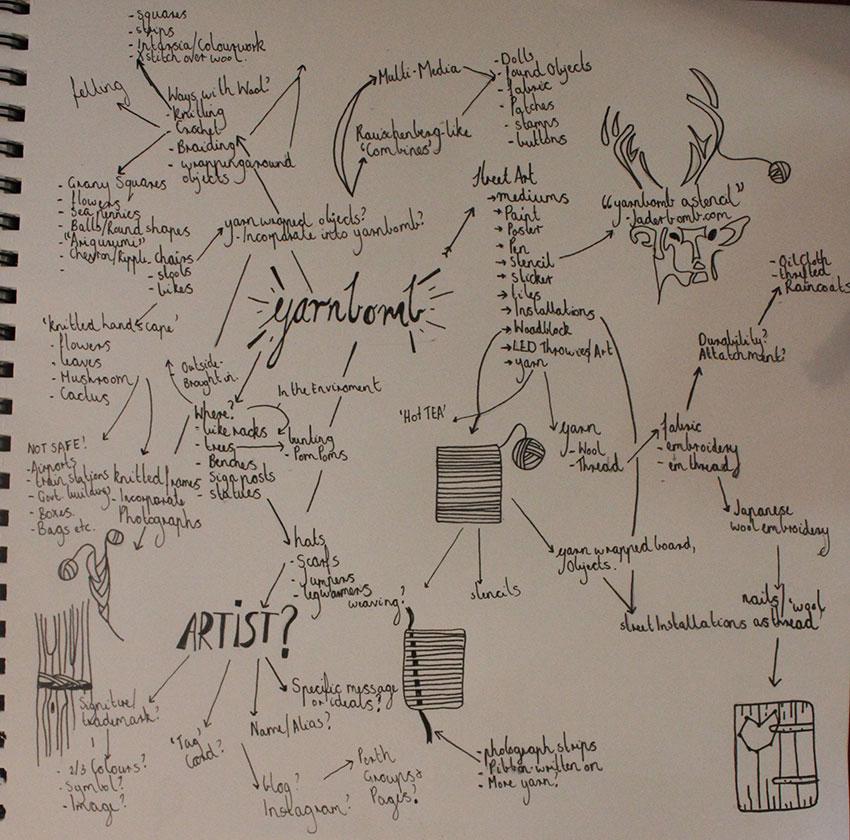 - squares
- strips
- Intarsia/Colourwork
- Xstitch over wool.
felting
Ways with Wool?
- Knitting
- Crochet
- Braiding
- wrapping around
objects
- Grany Squares
- flowers
- Sea pennies
- Balls/Round shapes
- "Amigurumi"
- Chevron/Ripple
chairs
- stools
- bikes
-
yarn wrapped objects?
- Incorparate into yarnbomb?
Multi-Media
- Dolls
- found Objects
- fabric
- Patches
- stamps
- buttons
Rauschenberg-like
'Combines'
Street Art
→ mediums
→ Paint
→ Poster
→ Pen
→ Stencil
→ Sticker
→ tiles
→ Installations
→ Woodblock
→ LED Throwies/Art
→ yarn
"yarnbomb a stencil"
- Jaderbomb.com
- Oil Cloth
- thrifted
Raincoats
Durability?
Attatchment?
yarnbomb
'knitted handscape'
- flowers
- leaves
- Mushroom
- Cactus
Outside-
Brought in.
In the Enviroment
Where?
- bike racks
- trees
- Benches
- Sign posts
- statues
bunting
- PomPoms
'Hot TEA'
yarn
- Wool
- Thread
fabric
- embroidery
- em thread
Japanese
wool embroidery
NOT SAFE!
- Airports
- train stations
- Govt. buildings
- Boxes.
- Bags etc.
knitted frames
- Incorporate
Photographs
hats
- Scarfs
- Jumpers
- legwarmers
weaving?
stencils
yarn wrapped board,
Objects.
nails/'wool
as thread'
street Installations
ARTIST?
Signiture/
trademark?
- 2/3 Colours?
- Symbol?
- Image?
'Tag'
Card?
Name/Alias?
Specific message
or ideals?
blog?
Instagram?
Perth
Groups &
Pages?
- photograph strips
- Ribbon written on
- More yarn?